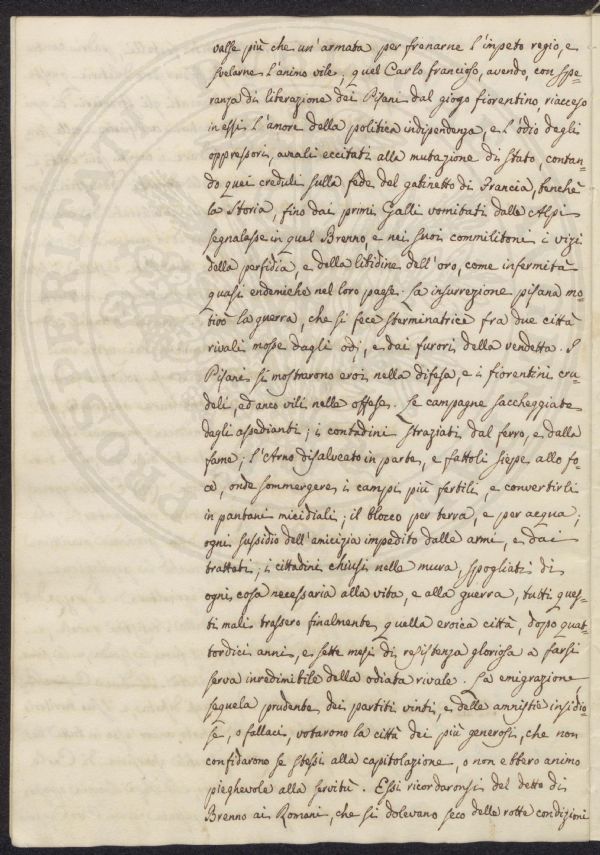 valse più che un'armata per frenarne l'impeto regio, e
svelarne l'animo vile; quel Carlo francioso, avendo, con spe-
ranza di liberazione dei Pisani dal giogo fiorentino, riacceso
in essi l'amore della politica indipendenza, e l'odio degli
oppressori, aveali eccitati alla mutazione di stato, contan-
do quei creduli sulla fede del gabinetto di Francia, benchè
la Storia, fino dai primi Galli vomitati dalle Alpi
segnalasse in quel Brenno, e nei suoi commilitoni i vizi
della perfidia, e della libidine dell'oro, come infermità
quasi endemiche nel loro paese. La insurrezione pisana mo-
tivò la guerra, che si fece sterminatrice fra due città
rivali mosse dagli odj, e dai furori della vendetta. I
Pisani si mostrarono eroi nella difesa, e i fiorentini cru-
deli, ed anco vili nelle offese. Le campagne saccheggiate
dagli assedianti; i contadini straziati dal ferro, e dalla
fame; l'Arno disalveato in parte, e fattoli siepe allo fo-
ce, onde sommergere i campi più fertili, e convertirli
in pantani micidiali; il blocco per terra, e per acqua;
ogni sussidio dell'amicizia impedito dalle armi, e dai
trattati; i cittadini chiusi nelle mura, spogliati di
ogni cosa necessaria alla vita, e alla guerra, tutti ques-
ti mali trassero finalmente quella eroica città, dopo quat-
tordici anni, e sette mesi di resistenza gloriosa a farsi
serva inredimibile della odiata rivale. La emigrazione
sequela prudente dei partiti vinti, e delle amnistie insidio-
se, o fallaci, votarono la città dei più generosi, che non
confidarono se stessi alla capitolazione, o non ebbero animo
pieghevole alla servitù. Essi ricordaronsi del detto di
Brenno ai Romani, che si dolevano seco delle rotte condizioni
PROSPERITATI